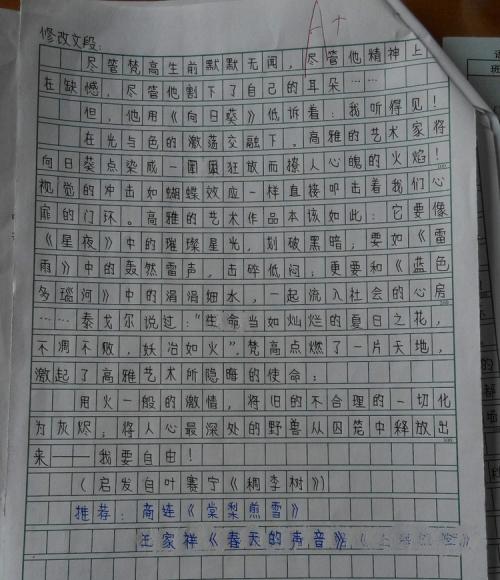 A+
修改文段:
尽管梵高生前默默无闻,尽管他精神上
存在缺憾,尽管他割下了自己的耳朵……
但,他用《向日葵》低诉着:我听得见!
在光与色的激荡交融下。高雅的艺术家将
向日葵点染成一团团狂放而撩人心魄的火焰!
视觉的冲击如蝴蝶效应一样直接叩击着我们心
扉的门环。高雅的艺术作品本该如此:它要像
《星夜》中的璀璨星光,划破黑暗;要如《雷
雨》中的轰然雷声,击碎低闷;更要和《蓝色
多瑙河》中的涓涓细水,一起流入社会的心房
……泰戈尔说过:“生命当如灿烂的夏日之花,
不凋不败,妖冶如火”.梵高点燃了一片天地,
激起了高雅艺术所隐晦的使命:
用火一般的激情,将旧的不合理的一切化
为灰烬;将人心最深处的野兽从囚笼中释放出
来——我要自由!
(启发自叶赛宁《稠李树》)
推荐:商连《棠梨煎雪》
王家祥《春天的声音》